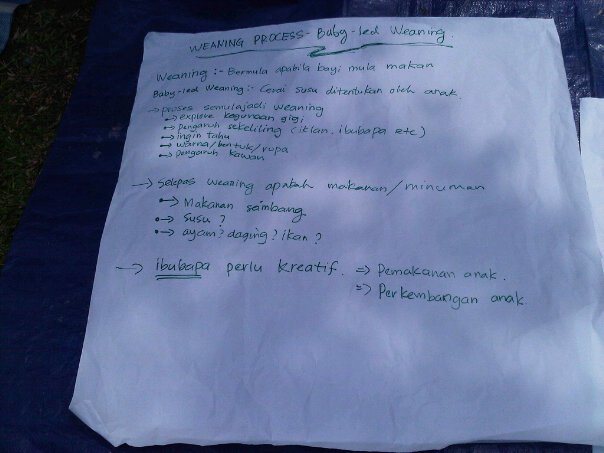 WEANING PROCESS - Baby-led Weaning.
Weaning :- Bermula apabila bayi mula makan
Baby-led Weaning :- Cerai susu ditentukan oleh anak.
→ proses semulajadi weaning
→ explore kegunaan gigi
→ pengaruh sekeliling (iklan, ibubapa etc)
→ ingin tahu
→ warna/bentuk/rupa
→ pengaruh kawan
→ Selepas weaning apakah makanan/minuman
→ Makanan seimbang
→ susu?
→ ayam? daging? ikan?
→ ibubapa perlu kreatif. => Pemakanan anak.
=> Perkembangan anak